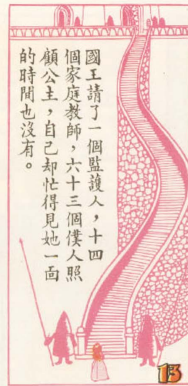 國王請了一個監護人，十四
個家庭教師，六十三個僕人照
顧公主，自己卻忙得見她一面
的時間也沒有。
13